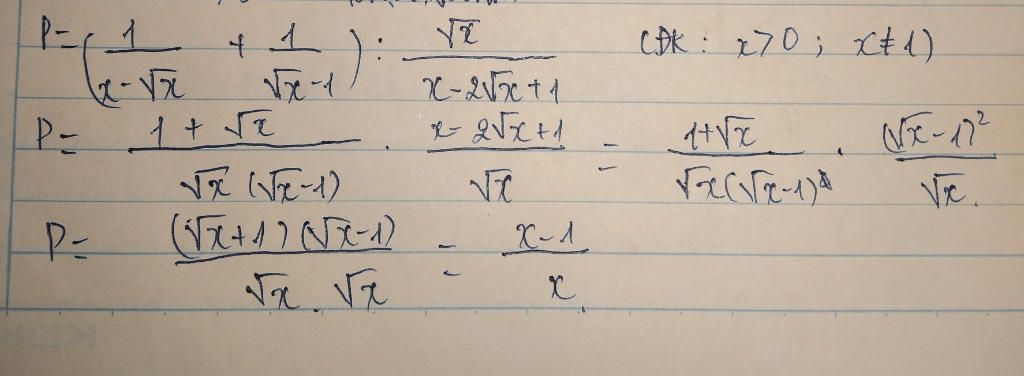 P = (1/(x-√x) + 1/(√x-1)) : √x/(x-2√x+1) (ĐK: x>0; x≠1)
P = (1+√x)/(√x(√x-1)) . (x-2√x+1)/√x = (1+√x)/(√x(√x-1)) . (√x-1)²/√x.
P = ((√x+1)(√x-1))/(√x.√x) = (x-1)/x.